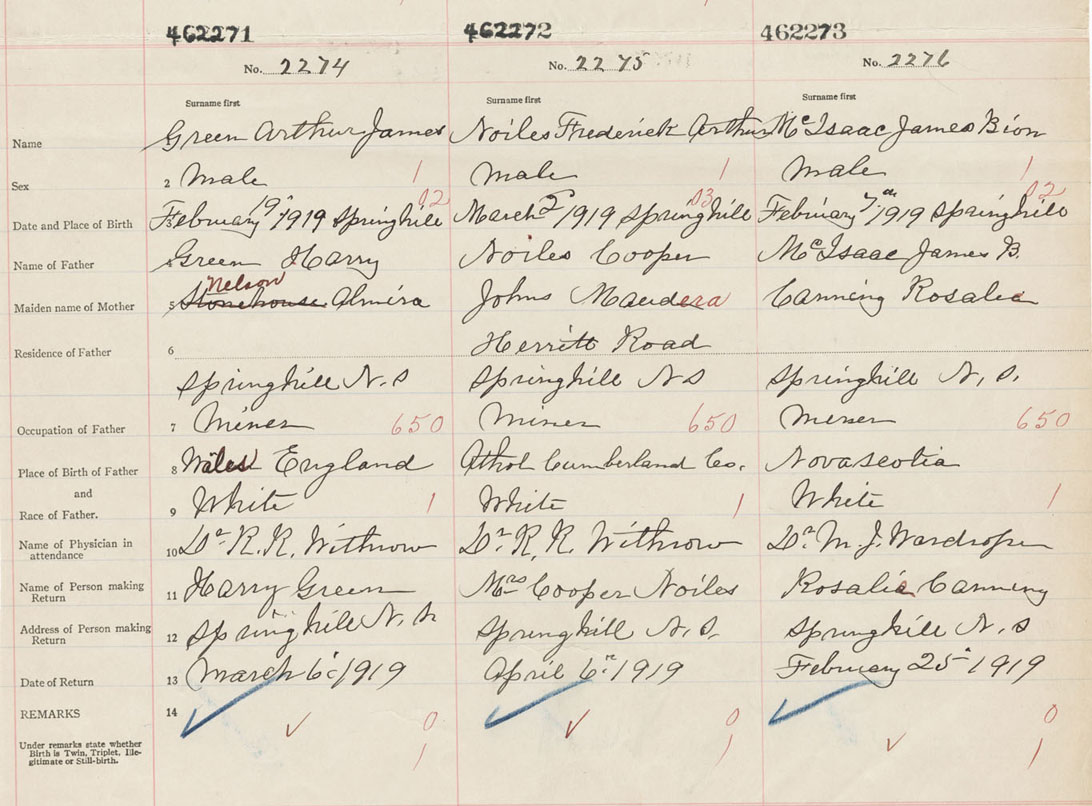 462271 462272 462273
No. 2274 No. 2275 No. 2276
Surname first Surname first Surname first
Name Green Arthur James Noiles Frederick Arthur McIsaac James Bion
Sex 2 Male 1 male 1 male 1
02 03 02
Date and Place of Birth 3 February 19th 1919 Springhill March 2 1919 Springhill February 7th 1919 Springhill
Name of Father 4 Green Harry Noiles Cooper McIsaac James B.
Nelson
Maiden name of Mother 5 Stonehouse Almira Johns Maudera Canning Rosalie
Herrett Road
Residence of Father 6
Springhill N.S Springhill NS Springhill N.S.
Occupation of Father 7 Miner 650 Miner 650 Miner 650
Place of Birth of Father 8 Wales England Athol Cumberland Co. Novascotia
and
Race of Father. 9 White 1 White 1 White 1
Name of Physician in attendance 10 Dr. R. R. Withrow Dr. R. R. Withrow Dr. M. J. Wardrope
Name of Person making Return 11 Harry Green Mrs Cooper Noiles Rosalie Canning
Address of Person making Return 12 Springhill N.S Springhill N.S. Springhill N.S
Date of Return 13 March 6th 1919 April 6th 1919 February 25th 1919
REMARKS 14 0 0 0
Under remarks state whether
Birth is Twin, Triplet, Ille-
gitimate or Still-birth. 1 1 1